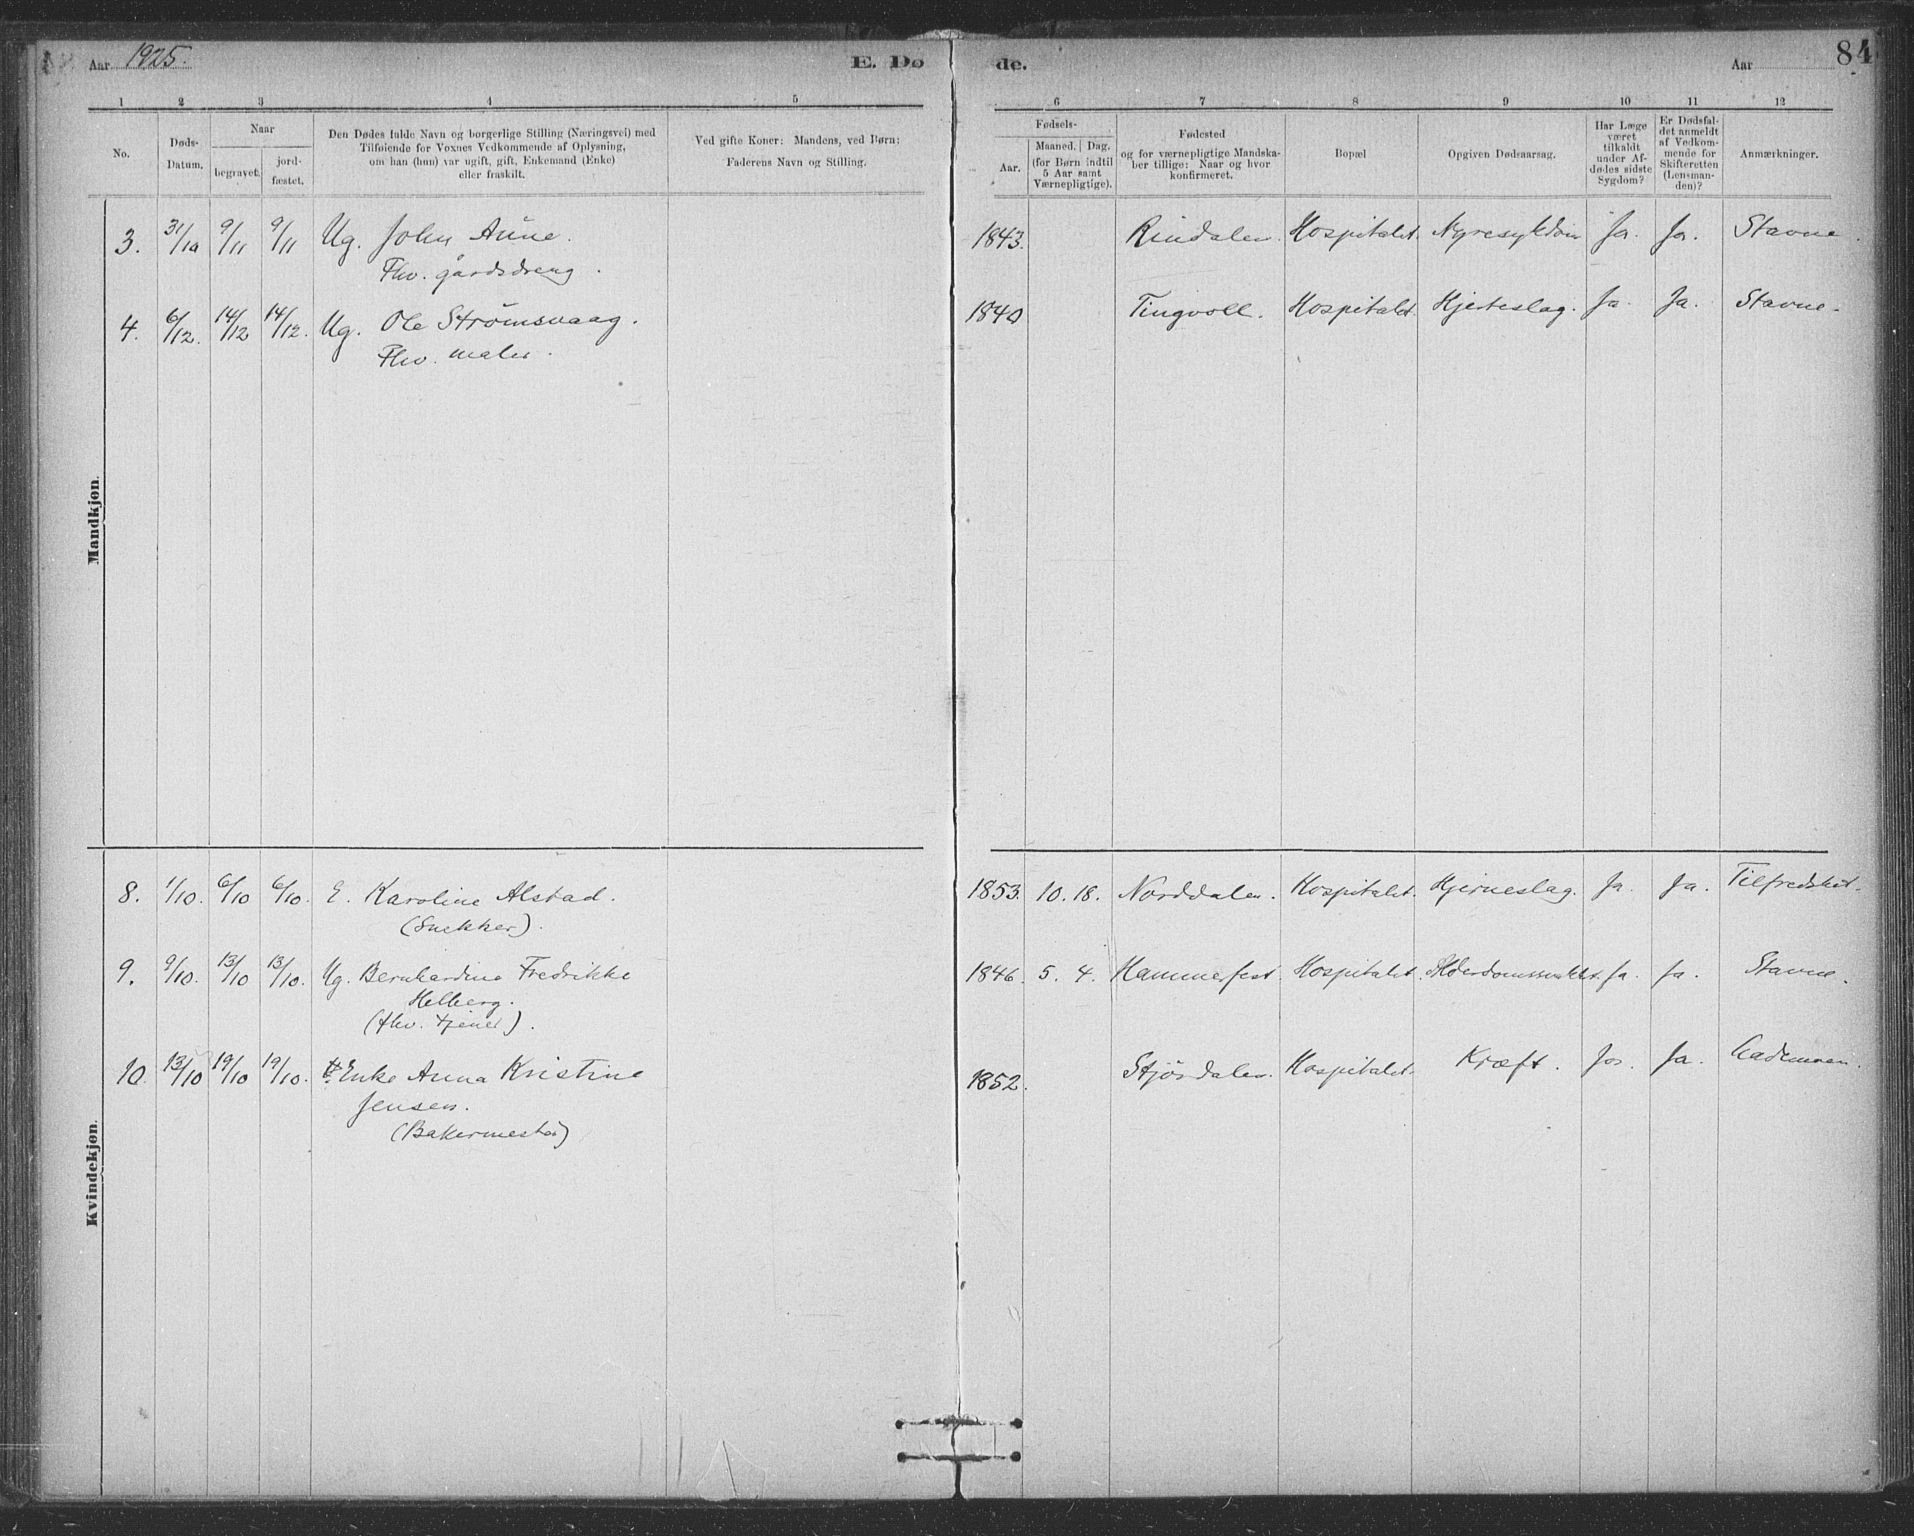 Aar 1925.
E. Dø
de.
Aar
84
1 2 3 4 5 6 7 8 9 10 11 12
No.
Døds-
Datum.
Naar
begravet.
jord-
fæstet.
Den Dødes fulde Navn og borgerlige Stilling (Næringsvei) med
Tilføiende for Voxnes Vedkommende af Oplysning,
om han (hun) var ugift, gift, Enkemand (Enke)
eller fraskilt.
Ved gifte Koner: Mandens, ved Børn:
Faderens Navn og Stilling.
Fødsels-
Aar.
Maaned. Dag.
(for Børn indtil
5 Aar samt
Værnepligtige).
Fødested
og for værnepligtige Mandska-
ber tillige: Naar og hvor
konfirmeret.
Bopæl
Opgiven Dødsaarsag.
Har Læge
været
tilkaldt
under Af-
dødes sidste
Sygdom?
Er Dødsfal-
det anmeldt
af Vedkom-
mende for
Skifteretten
(Lensman-
den)?
Anmærkninger.
Mandkjøn.
3. 31/10 9/11 9/11 Ug. John Aune. 1843. Rindalen. Hospitalet. Nyresykdom Ja. Ja. Stavne.
Fhv. gårdsdreng.
4. 6/12. 14/12 14/12. Ug. Ole Strømsvaag. 1840 Tingvoll. Hospitalet. Hjerteslag. Ja. Ja. Stavne.
Fhv. maler.
Kvindekjøn.
8. 1/10. 6/10 6/10. E. Karoline Alstad. 1853. 10. 18. Norddalen. Hospitalet. Hjerneslag. Ja. Ja. Tilfredshet.
(Snekker).
9. 9/10. 13/10 13/10. Ug. Bernhardine Fredrikke 1846. 5. 4. Hammerfest. Hospitalet. Ja. Ja. Stavne.
Helberg.
(fhv. tjener).
10. 13/10 19/10 19/10. Enke Anna Kristine 1852. Stjørdalen. Hospitalet. Kræft. Ja. Ja. Lademoen.
Jensen.
(Bakermester)